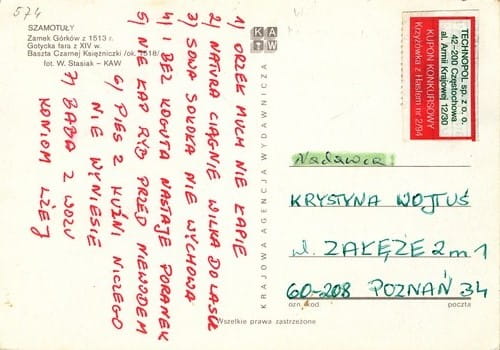 574
SZAMOTUŁY
Zamek Górków z 1513 r.
Gotycka fara z XIV w.
Baszta Czarnej Księżniczki /ok. 1518/
fot. W. Stasiak – KAW
1) ORZEŁ MUCH NIE ŁAPIE
2) NATURA CIĄGNIE WILKA DO LASU
3) SOWA SOKOŁA NIE WYCHOWA
4) I BEZ KOGUTA NASTAJE PORANEK
5) NIE ŁAP RYB PRZED NIEWODEM
6) PIES Z KUŹNI NICZEGO
NIE WYNIESIE
7) BABA Z WOZU
KONIOM LŻEJ
KAW
KRAJOWA AGENCJA WYDAWNICZA
TECHNOPOL sp. z o. o.
42-200 Częstochowa
al. Armii Krajowej 12/30
KUPON KONKURSOWY
Krzyżówka z Hasłem nr 2/94
Nadawca
KRYSTYNA WOJTUŚ
ul. ZAŁĘŻE 2 m 1
60-208 POZNAŃ 34
ozn. kod
poczta
Wszelkie prawa zastrzeżone